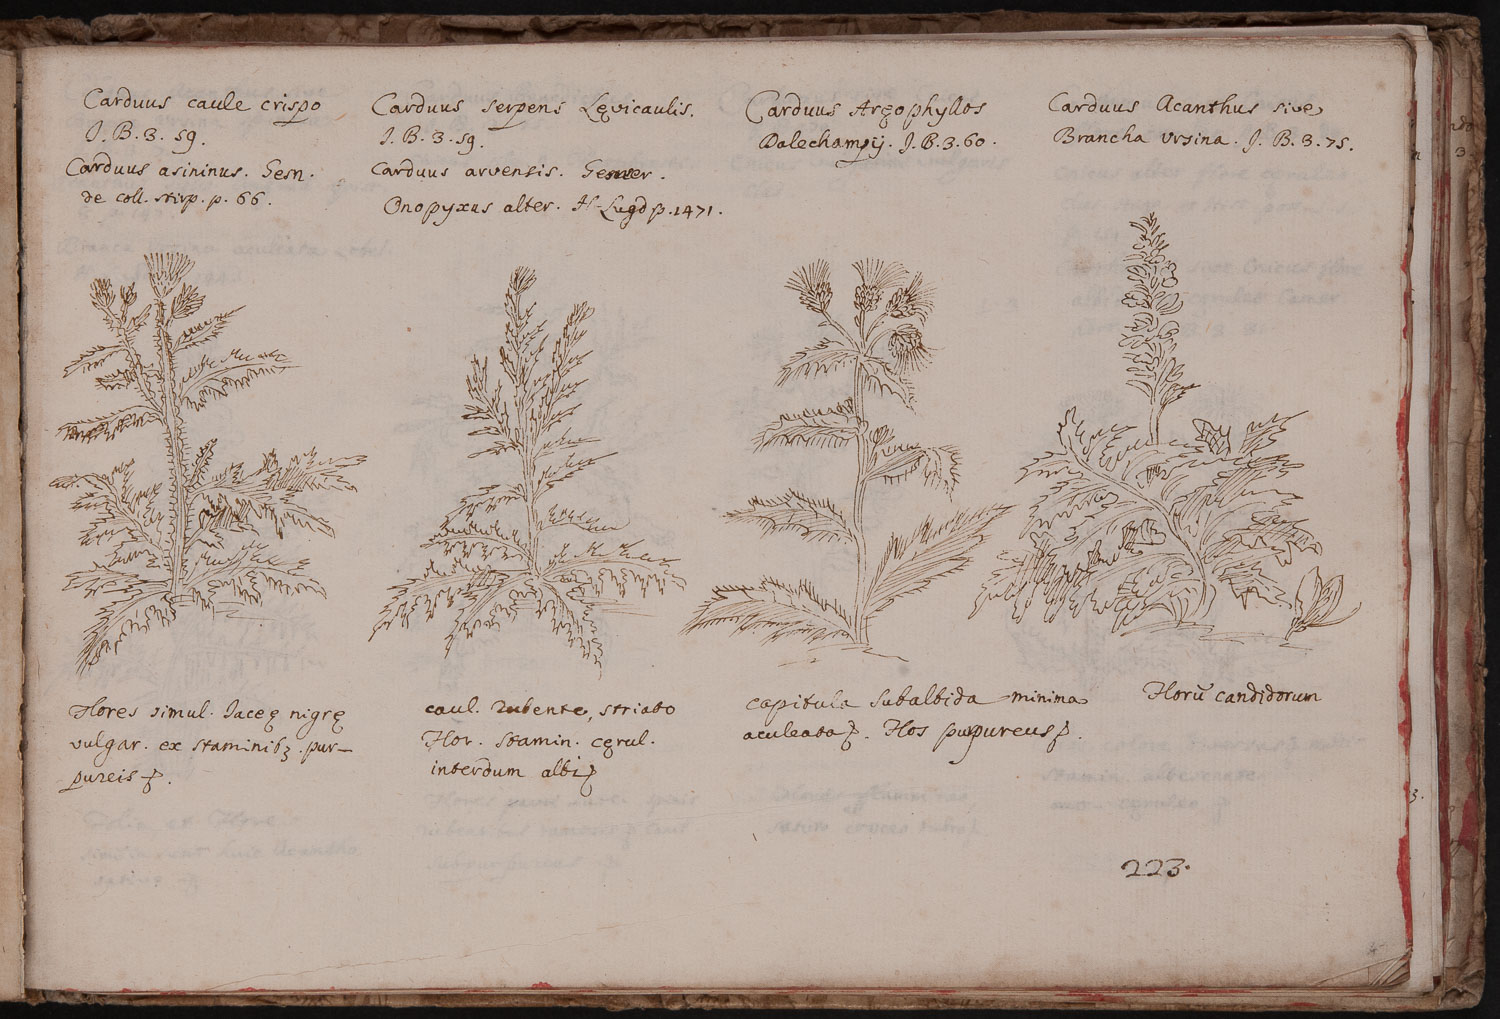 Carduus caule crispo
J. B. 3. 59.
Carduus asininus. Gesn.
de coll. stirp. p. 66.
Carduus serpens Lęvicaulis.
J. B. 3. 59.
Carduus arvensis. Gesner.
Onopyxus alter. H. Lugd p. 1471.
Carduus Argophyllos
Dalechampij. J. B. 3. 60.
Carduus Acanthus sive
Brancha Ursina. J. B. 3. 75.
Flores simul. Jaceę nigrę
vulgar. ex staminibꝫ. pur-
pureis
caul. rubente, striato
Flor. stamin. cęrul.
interdum albi
capitula subalbida minima
aculeata. Flos purpureus
Florū candidorum
223.